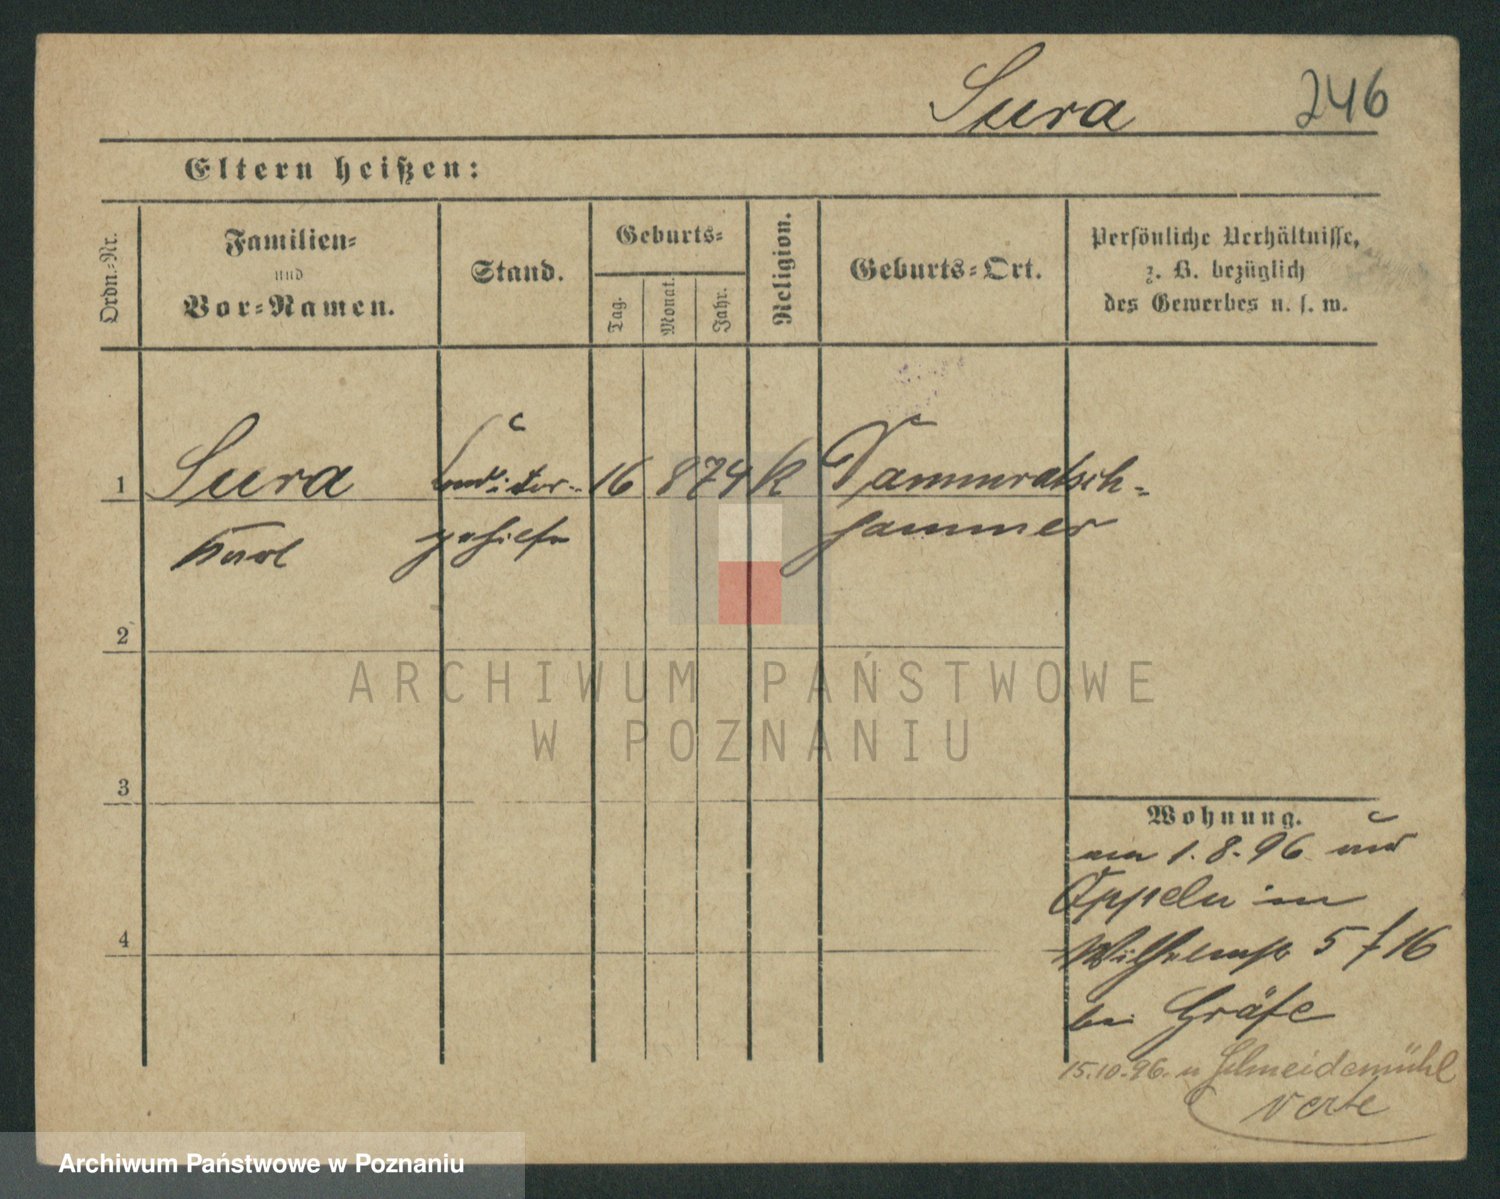 Sura 246
Eltern heißen:
Ordn.-Nr.
Familien-
und
Vor-Namen.
Stand.
Geburts-
Tag.
Monat.
Jahr.
Religion.
Geburts-Ort.
Persönliche Verhältnisse,
z. B. bezüglich
des Gewerbes u. s. w.
1 Sura Conditor- 16 8 74 k Tammratsch-
Karl gehilfe hammer
2
ARCHIWUM PAŃSTWOWE
W POZNANIU
3
Wohnung.
am 1.8.96 aus
Oppeln in
4
Wilhelmstr 5 f 16
bei Gräfe
15.10.96. n Schneidemühl
verte
Archiwum Państwowe w Poznaniu